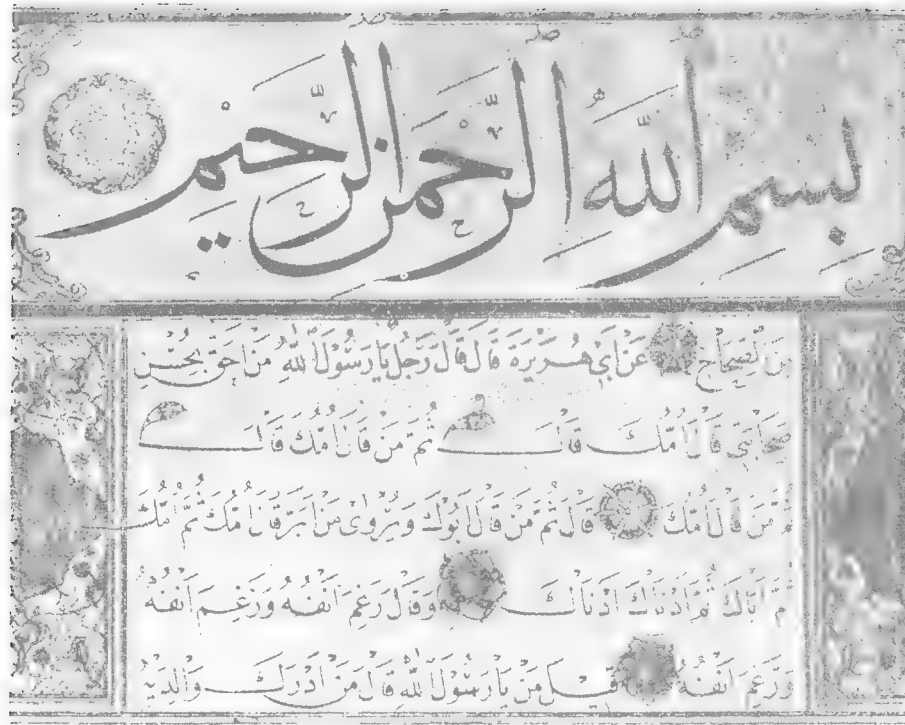 بِسْمِ ٱللّٰهِ ٱلرَّحْمٰنِ ٱلرَّحِيمِ
مِنَ الصِّحَاحِ عَنْ اَبِي هُرَيْرَةَ قَالَ قَالَ رَجُلٌ يَا رَسُولَ اللّٰهِ مَنْ اَحَقُّ بِحُسْنِ
صَحَابَتِي قَالَ اُمُّكَ قَالَ ثُمَّ مَنْ قَالَ اُمُّكَ قَالَ
ثُمَّ مَنْ قَالَ اُمُّكَ قَالَ ثُمَّ مَنْ قَالَ اَبُوكَ وَيُرْوٰى مَنْ اَبَرُّ قَالَ اُمَّكَ ثُمَّ اُمَّكَ
ثُمَّ اَبَاكَ ثُمَّ اَدْنَاكَ اَدْنَاكَ وَقَالَ رَغِمَ اَنْفُهُ وَرَغِمَ اَنْفُهُ
وَرَغِمَ اَنْفُهُ قِيلَ مَنْ يَا رَسُولَ اللّٰهِ قَالَ مَنْ اَدْرَكَ وَالِدَيْهِ